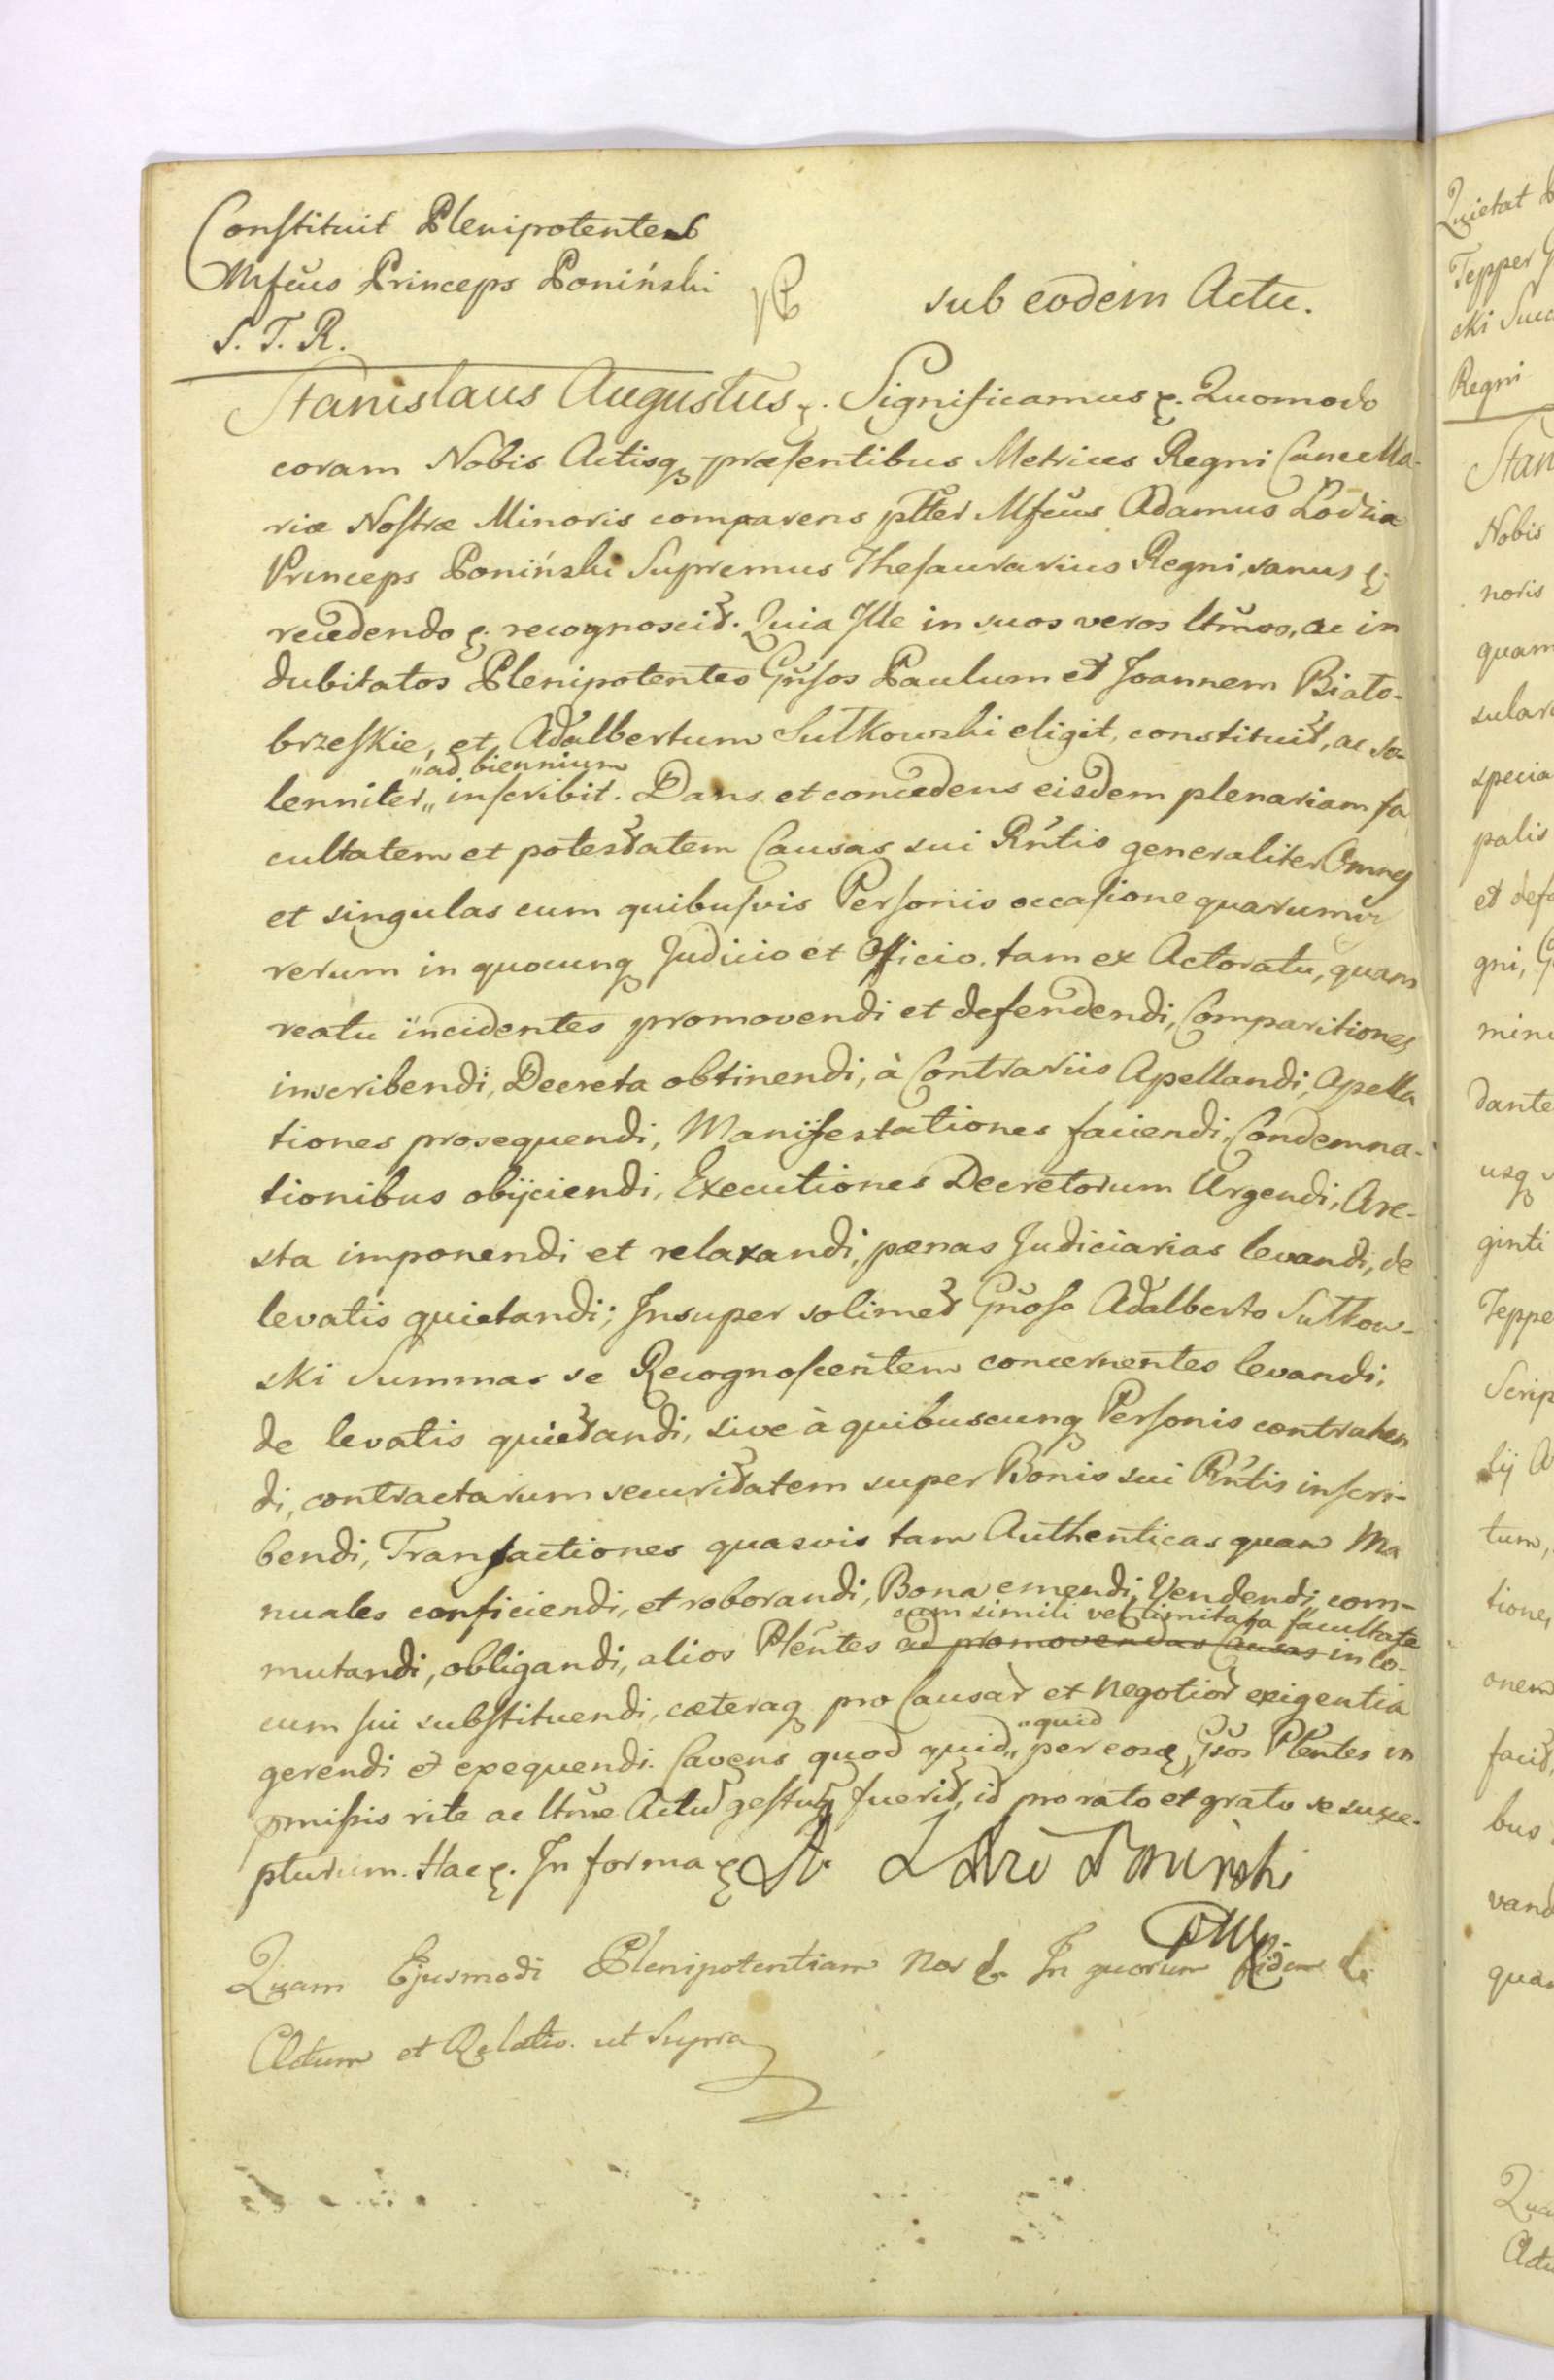 Constituit Plenipotentes
Mfcus Princeps Poniński
S. T. R.
sub eodem Actu.
Stanislaus Augustus. Significamus. Quomodo
coram Nobis Actisq præsentibus Metrices Regni Cancella-
riæ Nostræ Minoris comparens ptter Mfcus Adamus Lodzia
Princeps Poniński Supremus Thesaurarius Regni, sanus
recedendo recognoscit. Quia Ille in suos veros ltmos, ac in
dubitatos Plenipotentes Gnsos Paulum et Joannem Biało-
brzeskie, et Adalbertum Sutkowski eligit, constituit, ac so-
"ad biennium
lenniter" inscribit. Dans et concedens eisdem plenariam fa
cultatem et potestatem Causas sui Rntis generaliter Omnes
et singulas cum quibusvis Personis occasione quarumvis
rerum in quocunq Judicio et Officio, tam ex Actoratu, quam
reatu incidentes promovendi et defendendi, Comparitiones
inscribendi, Decreta obtinendi, à Contrariis Apellandi, Apella
tiones prosequendi, Manifestationes faciendi, Condemna-
tionibus obijciendi, Executiones Decretorum Urgendi, Are-
sta imponendi et relaxandi, pænas Judiciarias levandi, de
levatis quietandi; Insuper solimet Gnoso Adalberto Sutkow-
ski Summas se Recognoscentem concernentes levandi,
de levatis quietandi, sive à quibuscunq Personis contrahen
di, contractarum securitatem super Bonis sui Rntis inscri-
bendi, Transactiones quasvis tam Authenticas quam Ma
nuales conficiendi, et roborandi, Bona emendi, Vendendi, com-
cum simili vel limitata facultate
mutandi, obligandi, alios Plentes ad promovendas Causas in lo-
cum sui substituendi, cæteraq pro Causar et Negotior exigentia
gerendi et exequendi. Cavens quod quid" "quid per eosd Gsos Plentes in
pmissis rite ac ltme Actu gestuq fuerit, id pro rato et grato se susce-
pturum. Hac. In forma A. Łodzia Poniński
mp
Quam Ejusmodi Plenipotentiam Nos In quorum fidem
Actum et Relatio. ut Supra
Quietat
Tepper
ski Succ
Regni
Stan
Nobis
noris
quam
sular
specia
palis
et defe
gni, G
mine
dante
usq
ginti
Teppe
Scrip
lij A
tum,
tione,
onem
facit,
bus
vand
quan
Qua
Actu